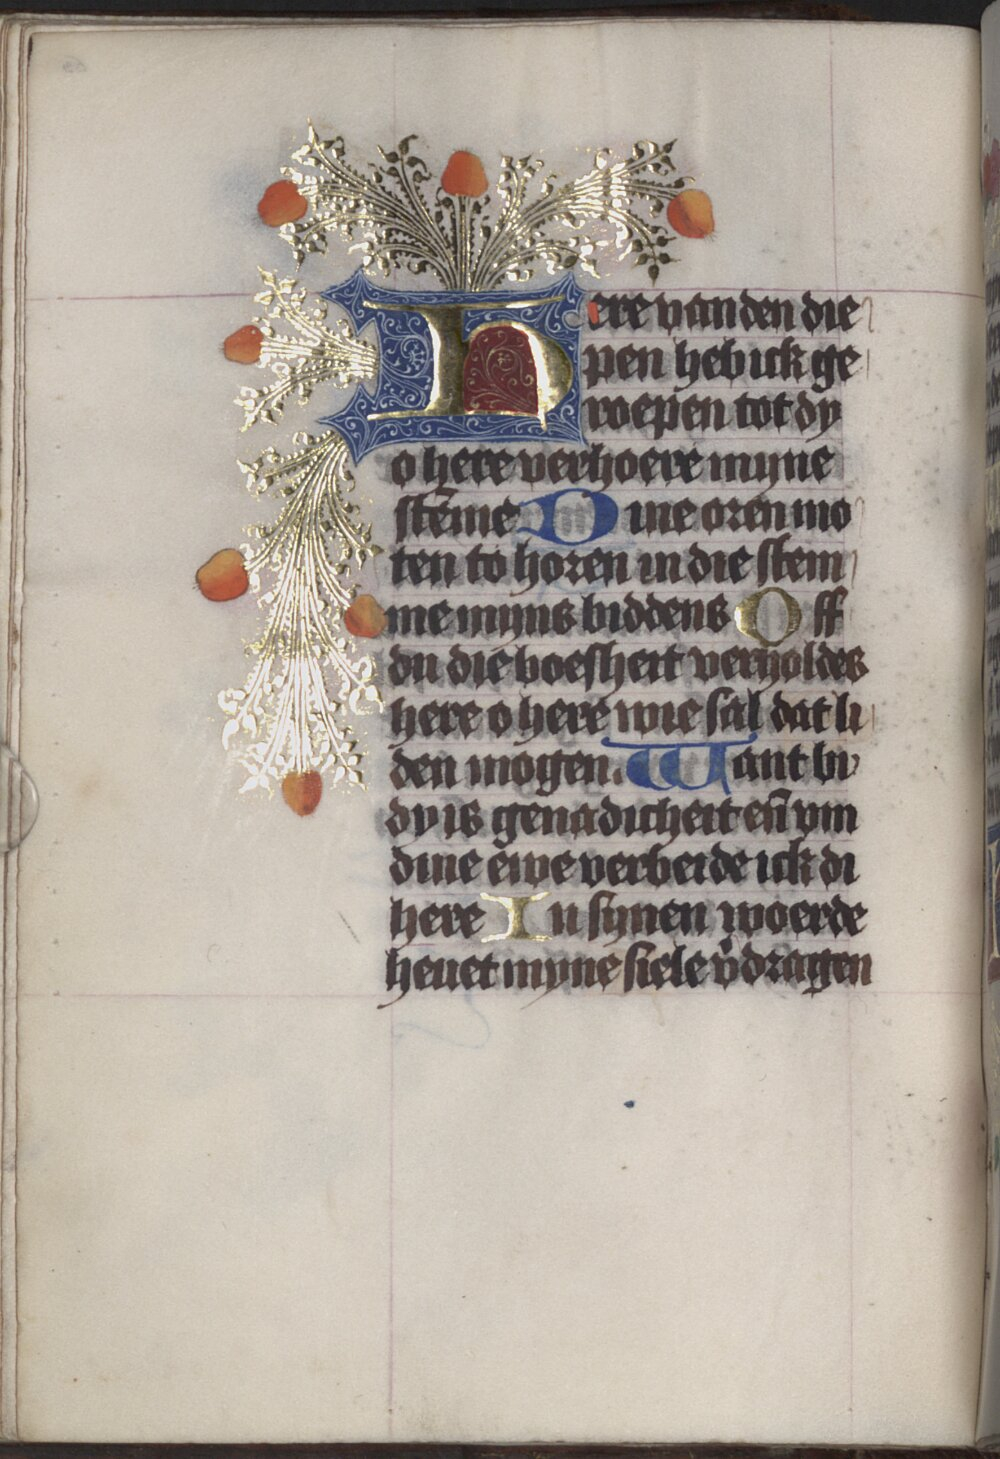 Here van den die
pen heb ick ge
roepen tot dy
o here verhoere myne
stēme Dine oren mo
ten to horen in die stem
me myns biddens Off
du die boesheit verholdes
here o here wie sal dat li
den mogen. Want bi
dy is genadicheit en̄ vm
dine ewe verbeide ick di
here In synen woerde
heuet myne siele v̓dragen